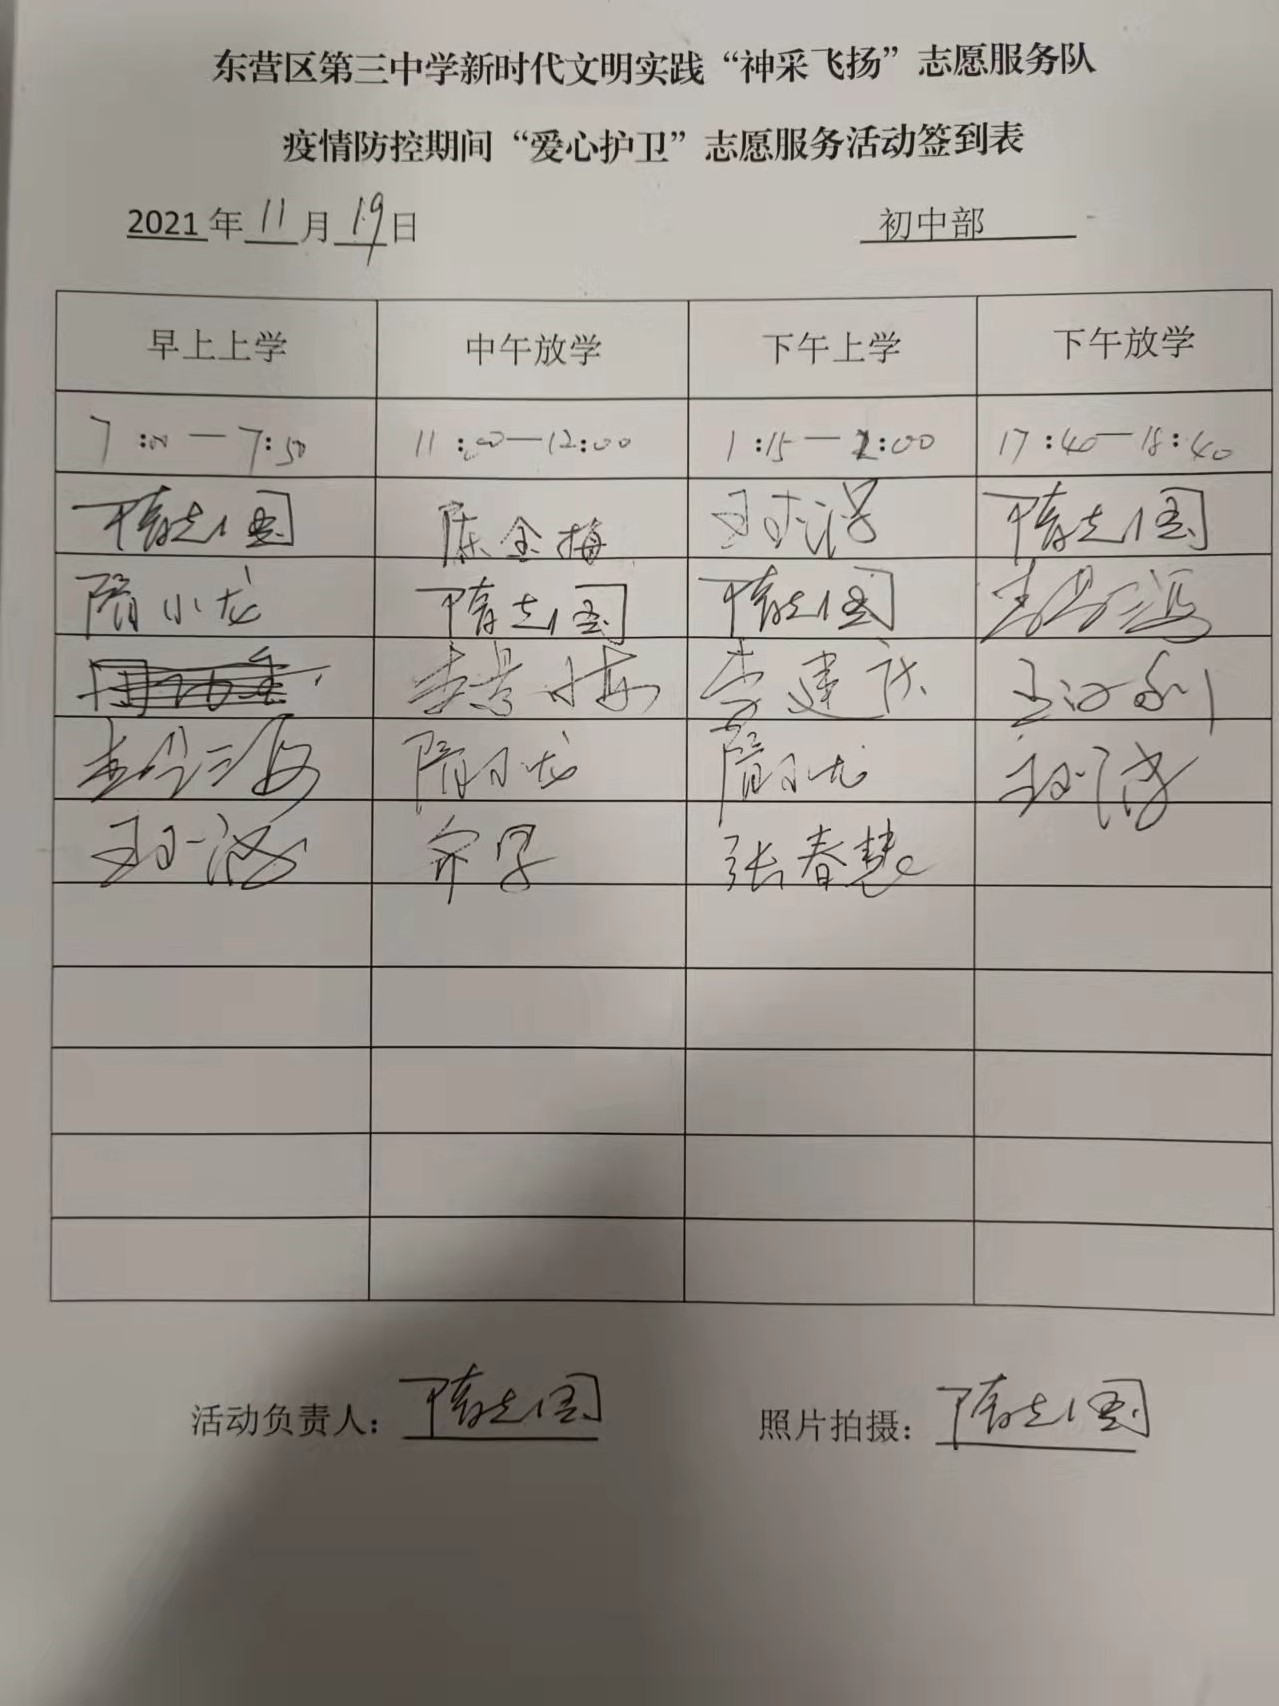 东营区第三中学新时代文明实践“神采飞扬”志愿服务队
疫情防控期间“爱心护卫”志愿服务活动签到表
2021年11月19日 初中部
早上上学 中午放学 下午上学 下午放学
7:00—7:50 11:00—12:00 1:15—2:00 17:40—18:40
隋志国 陈金梅 隋志国
隋小龙 隋志国 隋志国
李建
隋小龙 隋小龙
乔军 张春慧
活动负责人：隋志国 照片拍摄：隋志国